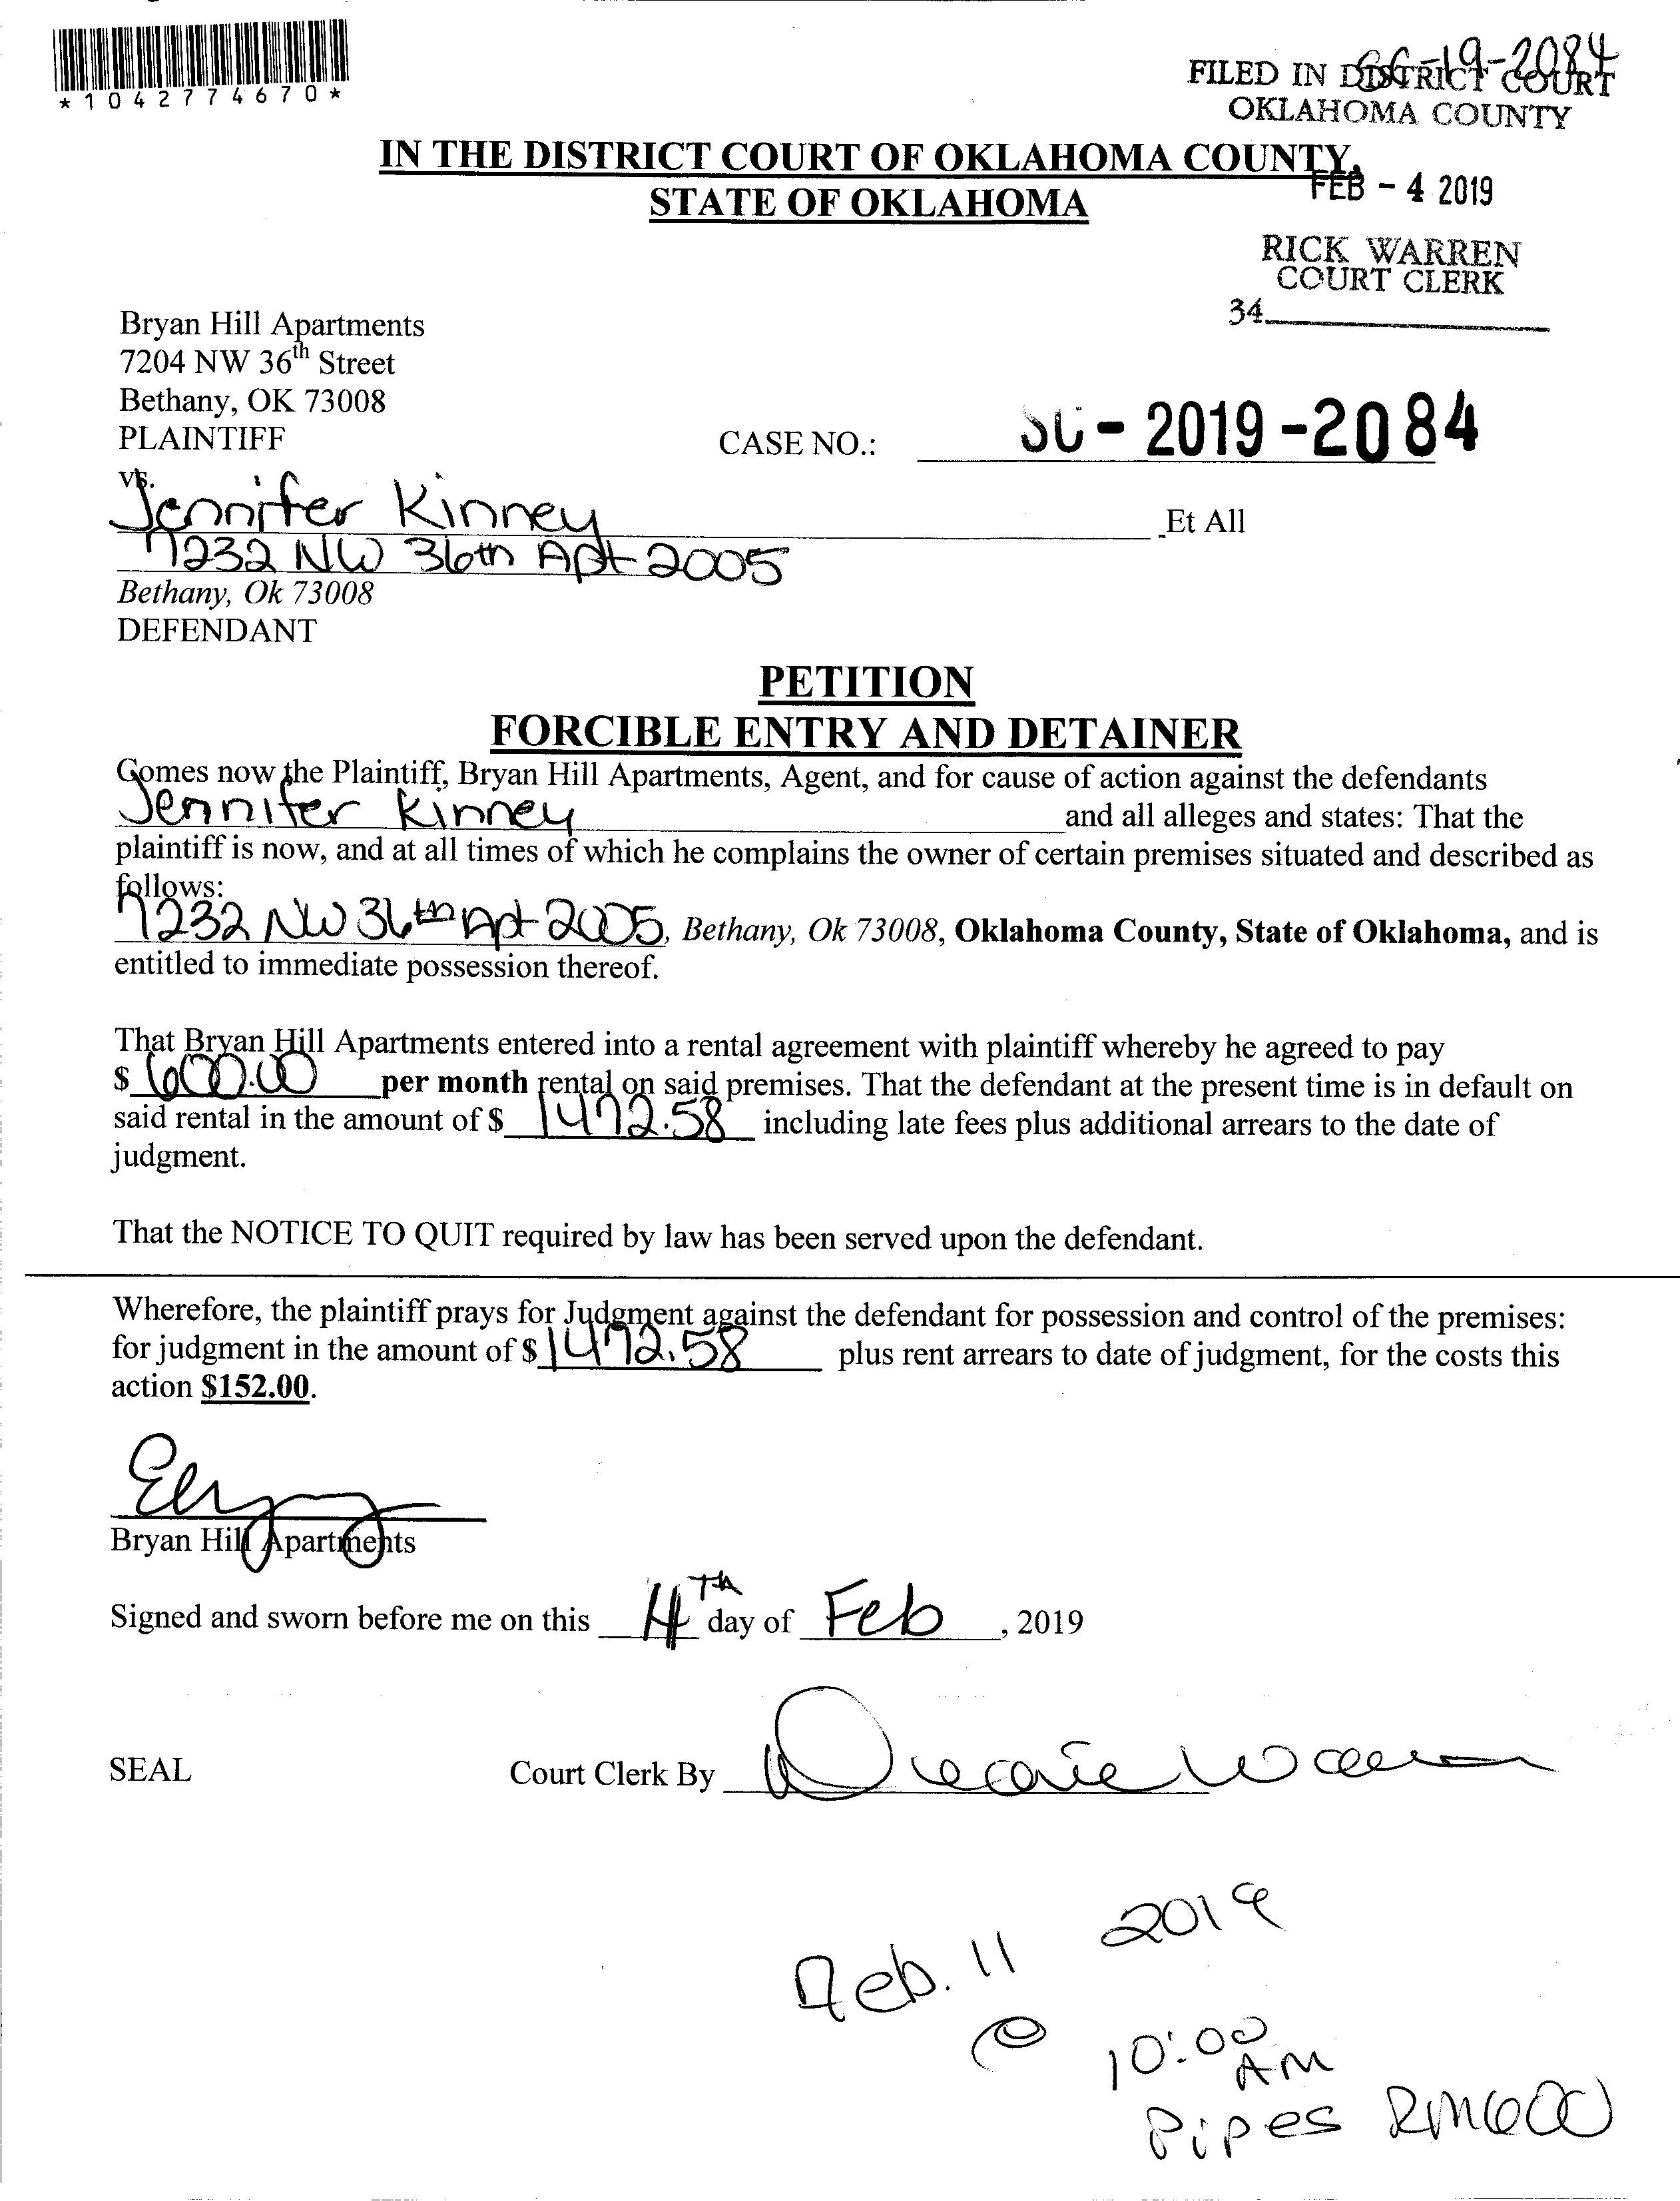 *1042774670*
SC-19-2084
FILED IN DISTRICT COURT
OKLAHOMA COUNTY
IN THE DISTRICT COURT OF OKLAHOMA COUNTY,
STATE OF OKLAHOMA
FEB - 4 2019
RICK WARREN
COURT CLERK
34
Bryan Hill Apartments
7204 NW 36th Street
Bethany, OK 73008
PLAINTIFF
CASE NO.: SC - 2019 - 2084
vs.
Jennifer Kinney Et All
7232 NW 36th Apt 2005
Bethany, Ok 73008
DEFENDANT
PETITION
FORCIBLE ENTRY AND DETAINER
Comes now the Plaintiff, Bryan Hill Apartments, Agent, and for cause of action against the defendants
Jennifer Kinney and all alleges and states: That the
plaintiff is now, and at all times of which he complains the owner of certain premises situated and described as
follows:
7232 NW 36th Apt 2005, Bethany, Ok 73008, Oklahoma County, State of Oklahoma, and is
entitled to immediate possession thereof.
That Bryan Hill Apartments entered into a rental agreement with plaintiff whereby he agreed to pay
$ 600.00 per month rental on said premises. That the defendant at the present time is in default on
said rental in the amount of $ 1472.58 including late fees plus additional arrears to the date of
judgment.
That the NOTICE TO QUIT required by law has been served upon the defendant.
Wherefore, the plaintiff prays for Judgment against the defendant for possession and control of the premises:
for judgment in the amount of $ 1472.58 plus rent arrears to date of judgment, for the costs this
action $152.00.
Bryan Hill Apartments
Signed and sworn before me on this 4TH day of Feb, 2019
SEAL Court Clerk By
Feb. 11 2019
@ 10:00 AM
Pipes RM600